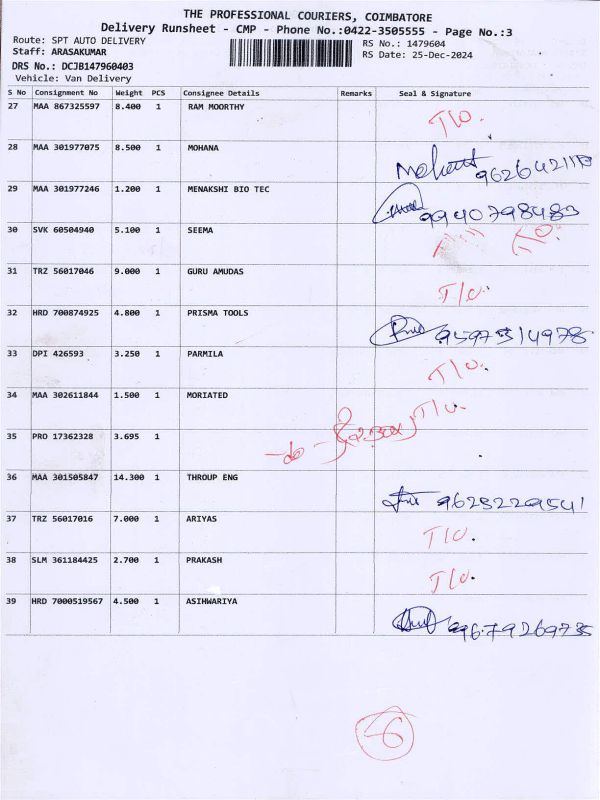 THE PROFESSIONAL COURIERS, COIMBATORE
Delivery Runsheet - CMP - Phone No.:0422-3505555 - Page No.:3
Route: SPT AUTO DELIVERY
Staff: ARASAKUMAR
RS No.: 1479604
RS Date: 25-Dec-2024
DRS No.: DCJB147960403
Vehicle: Van Delivery
S No Consignment No Weight PCS Consignee Details Remarks Seal & Signature
27 MAA 867325597 8.400 1 RAM MOORTHY T/O.
28 MAA 301977075 8.500 1 MOHANA
29 MAA 301977246 1.200 1 MENAKSHI BIO TEC 9940798483
30 SVK 60504940 5.100 1 SEEMA
31 TRZ 56017046 9.000 1 GURU AMUDAS T/O.
32 HRD 700874925 4.800 1 PRISMA TOOLS
33 DPI 426593 3.250 1 PARMILA T/O.
34 MAA 302611844 1.500 1 MORIATED T/O.
35 PRO 17362328 3.695 1
36 MAA 301505847 14.300 1 THROUP ENG
37 TRZ 56017016 7.000 1 ARIYAS T/O.
38 SLM 361184425 2.700 1 PRAKASH T/O.
39 HRD 7000519567 4.500 1 ASIHWARIYA 9679269735
6